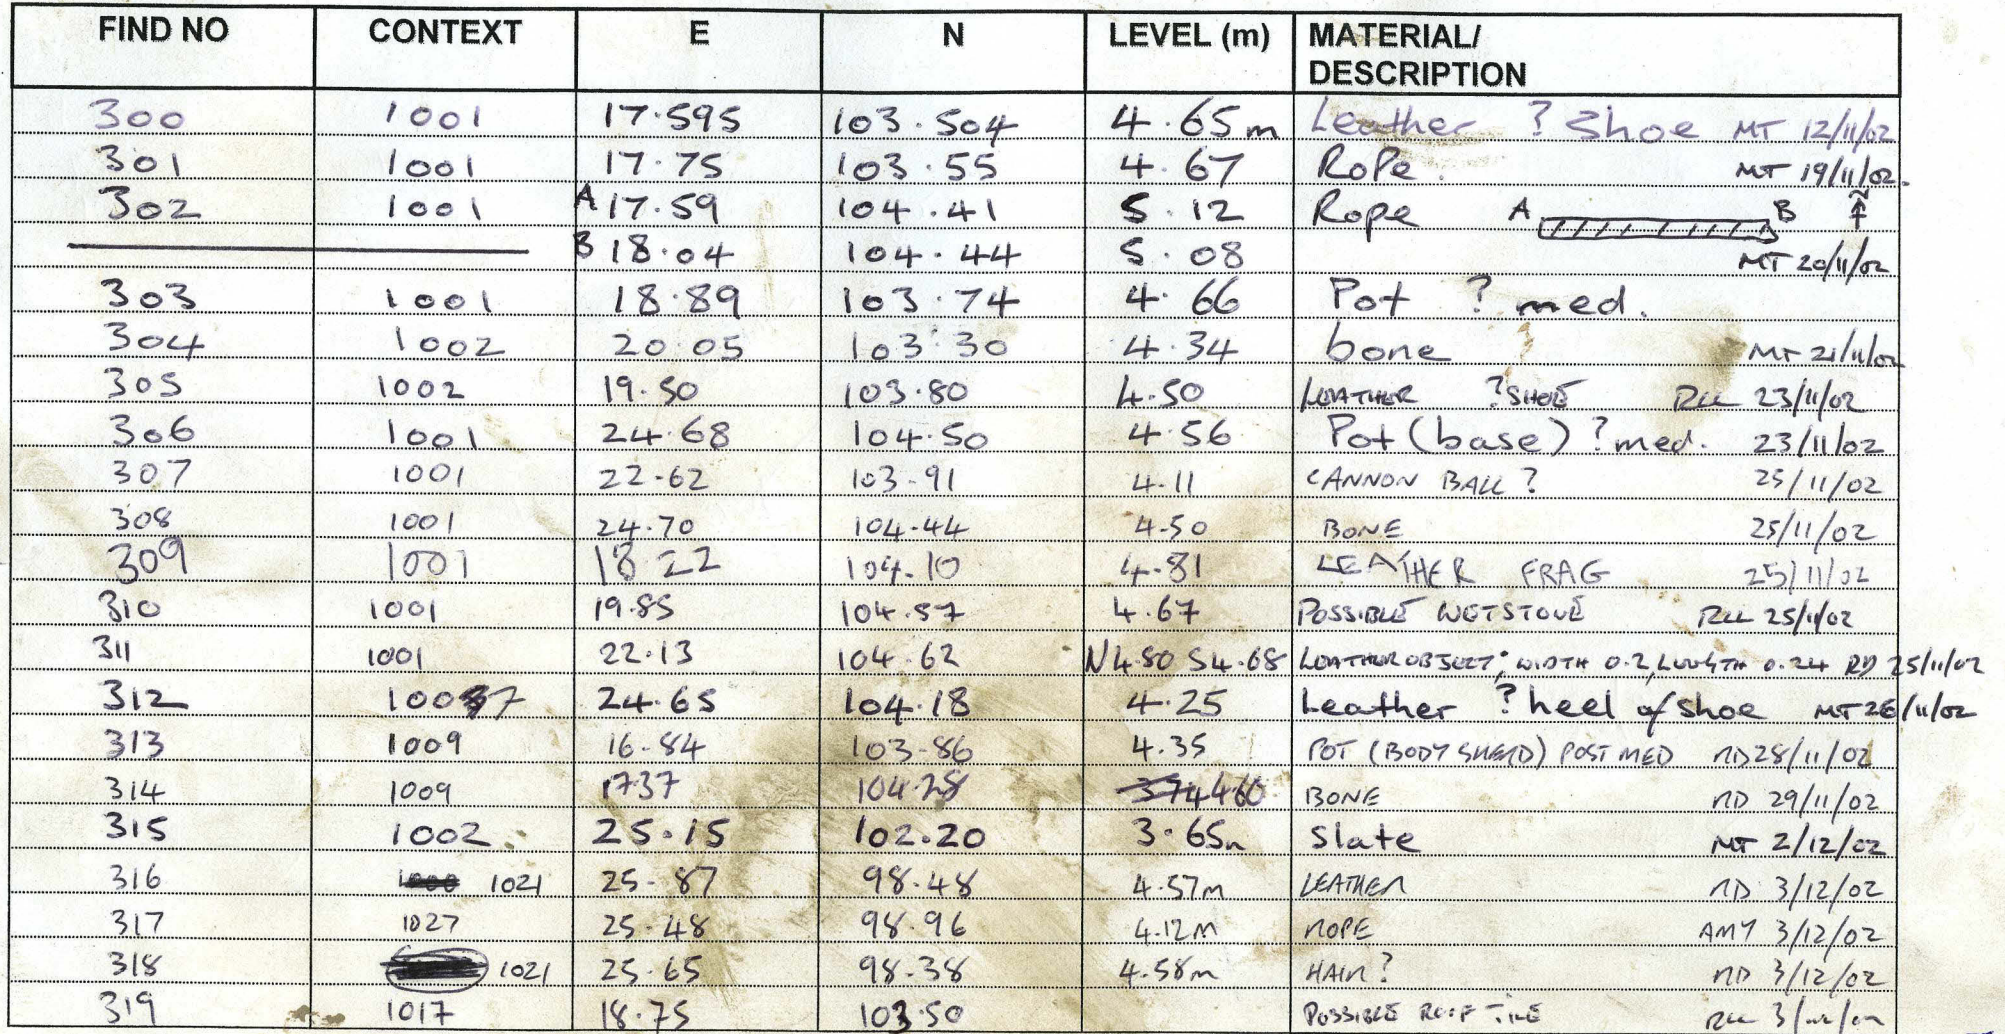 FIND NO CONTEXT E N LEVEL (m) MATERIAL/
DESCRIPTION
300 1001 17.595 103.504 4.65m Leather ? Shoe MT 12/11/02
301 1001 17.75 103.55 4.67 Rope MT 19/11/02.
302 1001 A 17.59 104.41 5.12 Rope A B
B 18.04 104.44 5.08 MT 20/11/02
303 1001 18.89 103.74 4.66 Pot ? med.
304 1002 20.05 103.30 4.34 bone MT 21/11/02
305 1002 19.50 103.80 4.50 LEATHER ?SHOE RLL 23/11/02
306 1001 24.68 104.50 4.56 Pot (base) ?med. 23/11/02
307 1001 22.62 103.91 4.11 CANNON BALL ? 25/11/02
308 1001 24.70 104.44 4.50 BONE 25/11/02
309 1001 18.22 104.10 4.81 LEATHER FRAG 25/11/02
310 1001 19.85 104.57 4.67 POSSIBLE WETSTONE RLL 25/11/02
311 1001 22.13 104.62 N4.80 S4.68 LEATHER OBJECT; WIDTH 0.2, LENGTH 0.24 RD 25/11/02
312 1007 24.65 104.18 4.25 Leather ? heel of shoe MT 26/11/02
313 1009 16.84 103.86 4.35 POT (BODY SHERD) POST MED RD 28/11/02
314 1009 1737 104.28 4.60 BONE RD 29/11/02
315 1002 25.15 102.20 3.65m Slate MT 2/12/02
316 1021 25.87 98.48 4.57m LEATHER RD 3/12/02
317 1027 25.48 98.96 4.12m ROPE AMY 3/12/02
318 1021 25.65 98.38 4.58m HAIR? RD 3/12/02
319 1017 18.75 103.50 POSSIBLE ROOF TILE RLL 3/12/02